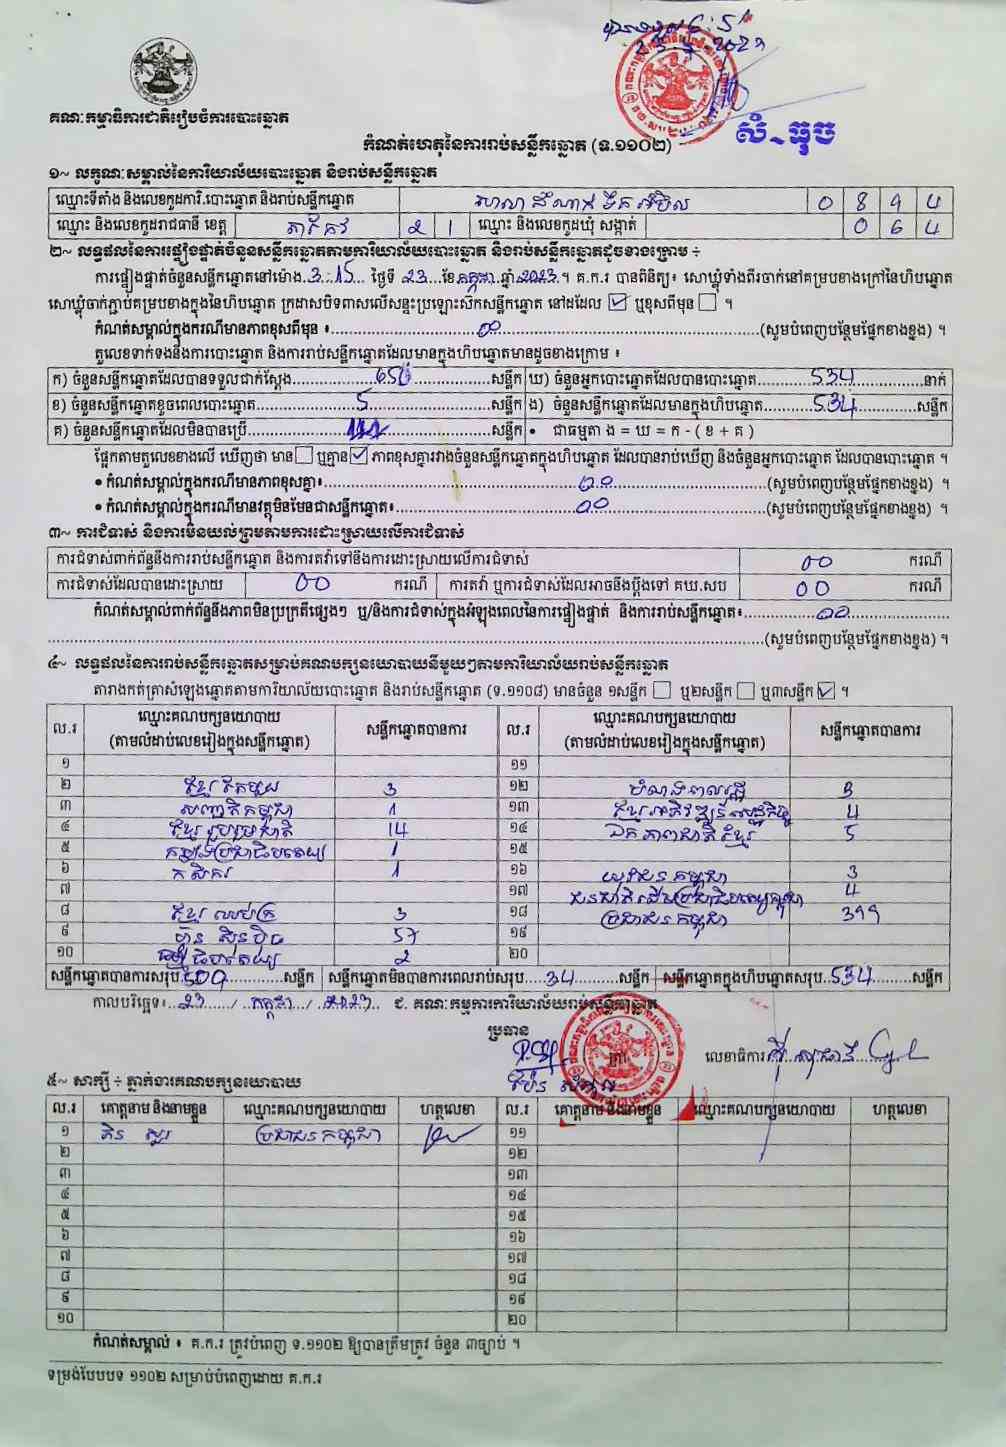 គណៈកម្មាធិការជាតិរៀបចំការបោះឆ្នោត
សំ ធុច
កំណត់ហេតុនៃការរាប់សន្លឹកឆ្នោត (ទ.១១០២)
១~ លក្ខណៈសម្គាល់នៃការិយាល័យបោះឆ្នោត និងរាប់សន្លឹកឆ្នោត
ឈ្មោះទីតាំង និងលេខកូដការិ.បោះឆ្នោត និងរាប់សន្លឹកឆ្នោត 0 8 9 4
ឈ្មោះ និងលេខកូដរាជធានី ខេត្ត តាកែវ 2 1 ឈ្មោះ និងលេខកូដឃុំ សង្កាត់ 0 6 4
២~ លទ្ធផលនៃការផ្ទៀងផ្ទាត់ចំនួនសន្លឹកឆ្នោតតាមការិយាល័យបោះឆ្នោត និងរាប់សន្លឹកឆ្នោតដូចខាងក្រោម ÷
ការផ្ទៀងផ្ទាត់ចំនួនសន្លឹកឆ្នោតនៅម៉ោង 3:15 ថ្ងៃទី 23 ខែ កក្កដា ឆ្នាំ 2023 ។ គ.ក.រ បានពិនិត្យ៖ សោឃ្លុំទាំងពីរចាក់នៅគម្របខាងក្រៅនៃហិបឆ្នោត
សោឃ្លុំចាក់ភ្ជាប់គម្របខាងក្នុងនៃហិបឆ្នោត ក្រដាសបិទពាសលើសន្ទះប្រឡោះស៊កសន្លឹកឆ្នោត នៅដដែល ☑ ឬខុសពីមុន ☐ ។
កំណត់សម្គាល់ក្នុងករណីមានភាពខុសពីមុន ៖ 00 (សូមបំពេញបន្ថែមផ្នែកខាងខ្នង) ។
តួលេខទាក់ទងនឹងការបោះឆ្នោត និងការរាប់សន្លឹកឆ្នោតដែលមានក្នុងហិបឆ្នោតមានដូចខាងក្រោម ៖
ក) ចំនួនសន្លឹកឆ្នោតដែលបានទទួលជាក់ស្តែង 650 សន្លឹក ឃ) ចំនួនអ្នកបោះឆ្នោតដែលបានបោះឆ្នោត 534 នាក់
ខ) ចំនួនសន្លឹកឆ្នោតខូចពេលបោះឆ្នោត 5 សន្លឹក ង) ចំនួនសន្លឹកឆ្នោតដែលមានក្នុងហិបឆ្នោត 534 សន្លឹក
គ) ចំនួនសន្លឹកឆ្នោតដែលមិនបានប្រើ 111 សន្លឹក • ជាធម្មតា ង = ឃ = ក - ( ខ + គ )
ផ្អែកតាមតួលេខខាងលើ ឃើញថា មាន ☐ ឬគ្មាន ☑ ភាពខុសគ្នារវាងចំនួនសន្លឹកឆ្នោតក្នុងហិបឆ្នោត ដែលបានរាប់ឃើញ និងចំនួនអ្នកបោះឆ្នោត ដែលបានបោះឆ្នោត ។
• កំណត់សម្គាល់ក្នុងករណីមានភាពខុសគ្នា៖ 00 (សូមបំពេញបន្ថែមផ្នែកខាងខ្នង) ។
• កំណត់សម្គាល់ក្នុងករណីមានវត្ថុមិនមែនជាសន្លឹកឆ្នោត៖ 00 (សូមបំពេញបន្ថែមផ្នែកខាងខ្នង) ។
៣~ ការជំទាស់ និងការមិនយល់ព្រមតាមការដោះស្រាយលើការជំទាស់
ការជំទាស់ពាក់ព័ន្ធនឹងការរាប់សន្លឹកឆ្នោត និងការតវ៉ាទៅនឹងការដោះស្រាយលើការជំទាស់ 00 ករណី
ការជំទាស់ដែលបានដោះស្រាយ 00 ករណី ការតវ៉ា ឬការជំទាស់ដែលអាចនឹងប្តឹងទៅ គឃ.សប 00 ករណី
កំណត់សម្គាល់ពាក់ព័ន្ធនឹងភាពមិនប្រក្រតីផ្សេងៗ ឬ/និងការជំទាស់ក្នុងអំឡុងពេលនៃការផ្ទៀងផ្ទាត់ និងការរាប់សន្លឹកឆ្នោត៖ 00
(សូមបំពេញបន្ថែមផ្នែកខាងខ្នង) ។
៤~ លទ្ធផលនៃការរាប់សន្លឹកឆ្នោតសម្រាប់គណបក្សនយោបាយនីមួយៗតាមការិយាល័យរាប់សន្លឹកឆ្នោត
តារាងកត់ត្រាសំឡេងឆ្នោតតាមការិយាល័យបោះឆ្នោត និងរាប់សន្លឹកឆ្នោត (ទ.១១០៨) មានចំនួន ១សន្លឹក ☐ ឬ២សន្លឹក ☐ ឬ៣សន្លឹក ☑ ។
ល.រ ឈ្មោះគណបក្សនយោបាយ (តាមលំដាប់លេខរៀងក្នុងសន្លឹកឆ្នោត) សន្លឹកឆ្នោតបានការ ល.រ ឈ្មោះគណបក្សនយោបាយ (តាមលំដាប់លេខរៀងក្នុងសន្លឹកឆ្នោត) សន្លឹកឆ្នោតបានការ
១ ១១
២ ខ្មែរតែមួយ 3 ១២ 3
៣ សញ្ជាតិកម្ពុជា 1 ១៣ ខ្មែរអភិវឌ្ឍន៍សេដ្ឋកិច្ច 4
៤ ខ្មែររួបរួមជាតិ 14 ១៤ ឯកភាពជាតិខ្មែរ 5
៥ កម្លាំងប្រជាធិបតេយ្យ 1 ១៥
៦ កសិករ 1 ១៦ យុវជនកម្ពុជា 3
៧ ១៧ ជនជាតិដើមប្រជាធិបតេយ្យកម្ពុជា 4
៨ ខ្មែរឈប់ក្រ 3 ១៨ ប្រជាជនកម្ពុជា 399
៩ ហ៊្វុនស៊ិនប៉ិច 57 ១៩
១០ ធម្មាធិបតេយ្យ 2 ២០
សន្លឹកឆ្នោតបានការសរុប 500 សន្លឹក សន្លឹកឆ្នោតមិនបានការពេលរាប់សរុប 34 សន្លឹក សន្លឹកឆ្នោតក្នុងហិបឆ្នោតសរុប 534 សន្លឹក
កាលបរិច្ឆេទ៖ 23 / កក្កដា / 2023 ជ. គណៈកម្មការការិយាល័យរាប់សន្លឹកឆ្នោត
ប្រធាន
លេខាធិការ
៥~ សាក្សី ÷ ភ្នាក់ងារគណបក្សនយោបាយ
ល.រ គោត្តនាម និងនាមខ្លួន ឈ្មោះគណបក្សនយោបាយ ហត្ថលេខា ល.រ គោត្តនាម និងនាមខ្លួន ឈ្មោះគណបក្សនយោបាយ ហត្ថលេខា
១ ប្រជាជនកម្ពុជា ១១
២ ១២
៣ ១៣
៤ ១៤
៥ ១៥
៦ ១៦
៧ ១៧
៨ ១៨
៩ ១៩
១០ ២០
កំណត់សម្គាល់ ៖ គ.ក.រ ត្រូវបំពេញ ទ.១១០២ ឱ្យបានត្រឹមត្រូវ ចំនួន ៣ច្បាប់ ។
ទម្រង់បែបបទ ១១០២ សម្រាប់បំពេញដោយ គ.ក.រ